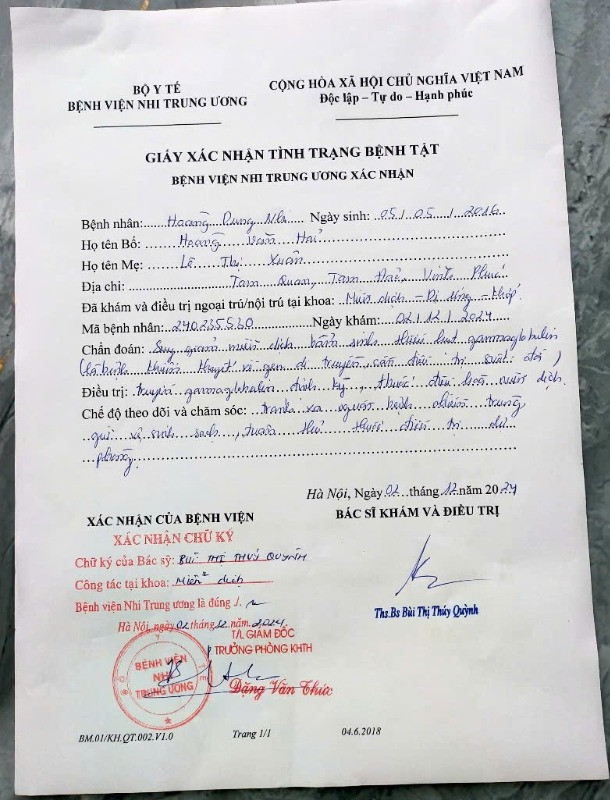 BỘ Y TẾ
BỆNH VIỆN NHI TRUNG ƯƠNG
CỘNG HÒA XÃ HỘI CHỦ NGHĨA VIỆT NAM
Độc lập – Tự do – Hạnh phúc
GIẤY XÁC NHẬN TÌNH TRẠNG BỆNH TẬT
BỆNH VIỆN NHI TRUNG ƯƠNG XÁC NHẬN
Bệnh nhân: Hoàng Dung Nhi Ngày sinh: 05/05/2016
Họ tên Bố: Hoàng Văn Hải
Họ tên Mẹ: Lê Thị Xuân
Địa chỉ: Tam Quan, Tam Đảo, Vĩnh Phúc
Đã khám và điều trị ngoại trú/nội trú tại khoa: Miễn dịch - Dị ứng - Khớp
Mã bệnh nhân: 240235530 Ngày khám: 02/12/2024
Chẩn đoán: Suy giảm miễn dịch bẩm sinh thiếu hụt gammaglobulin
(là bệnh khiếm khuyết về gen di truyền, cần điều trị suốt đời)
Điều trị: truyền gammaglobulin định kỳ, thuốc điều hòa miễn dịch.
Chế độ theo dõi và chăm sóc: tránh xa nguồn bệnh nhiễm trùng
giữ vệ sinh sạch, tuân thủ thuốc điều trị dự
phòng
Hà Nội, Ngày 02 tháng 12 năm 2024
XÁC NHẬN CỦA BỆNH VIỆN
BÁC SĨ KHÁM VÀ ĐIỀU TRỊ
XÁC NHẬN CHỮ KÝ
Chữ ký của Bác sỹ: BÙI THỊ THÚY QUỲNH
Công tác tại khoa: Miễn dịch
Bệnh viện Nhi Trung ương là đúng ./.
Ths.Bs Bùi Thị Thúy Quỳnh
Hà Nội, ngày 02 tháng 12 năm 2024
T/L GIÁM ĐỐC
TRƯỞNG PHÒNG KHTH
BỆNH VIỆN
NHI
TRUNG ƯƠNG
Đặng Văn Thức
BM.01/KH.QT.002.V1.0 Trang 1/1 04.6.2018